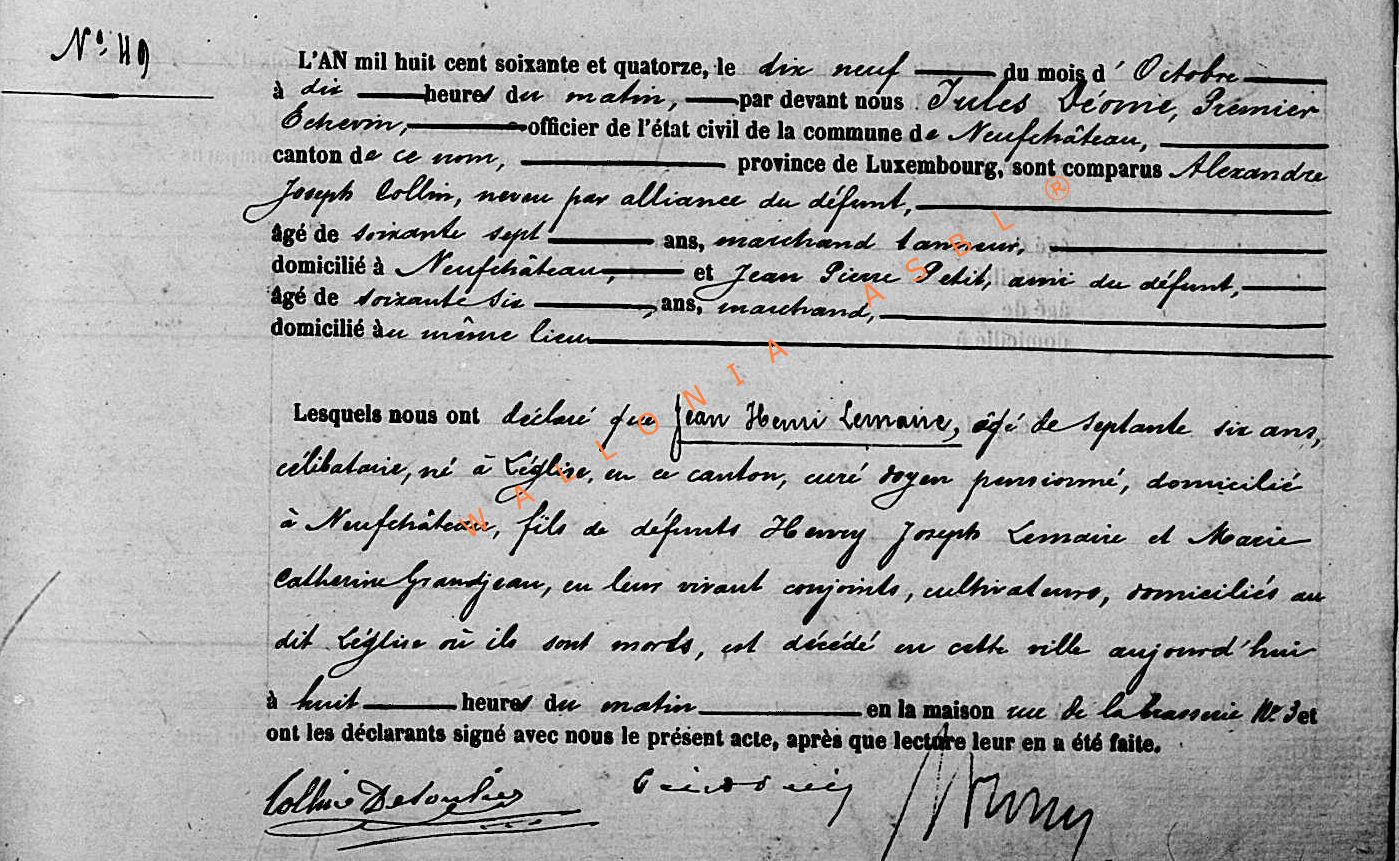 N° 49
L'AN mil huit cent soixante et quatorze, le dix neuf du mois d' Octobre
à dix heures du matin, par devant nous Jules Déome, Premier
Echevin, officier de l'état civil de la commune de Neufchâteau,
canton de ce nom, province de Luxembourg, sont comparus Alexandre
Joseph Collin, neveu par alliance du défunt,
âgé de soixante sept ans, marchand tanneur,
domicilié à Neufchâteau, et Jean Pierre Petit, ami du défunt,
âgé de soixante six ans, marchand,
domicilié au même lieu
Lesquels nous ont déclaré que Jean Henri Lemaire, âgé de septante six ans,
célibataire, né à Léglise, en ce canton, curé doyen pensionné, domicilié
à Neufchâteau, fils de défunts Henry Joseph Lemaire et Marie
Catherine Grandjean, en leur vivant conjoints, cultivateurs, domiciliés au
dit Léglise où ils sont morts, est décédé en cette ville aujourd'hui
à huit heures du matin en la maison rue de la brasserie N° 3 et
ont les déclarants signé avec nous le présent acte, après que lecture leur en a été faite.
Collin
WALLONIA ASBL ®